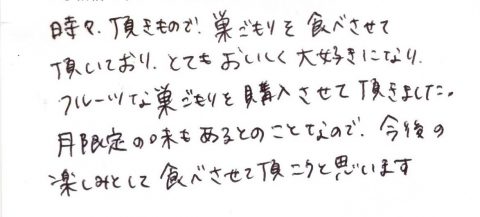 時々、頂きもので、巣ごもりを食べさせて
頂いており、とてもおいしく大好きになり、
フルーツな巣ごもりを購入させて頂きました。
月限定の味もあるとのことなので、今後の
楽しみとして食べさせて頂こうと思います